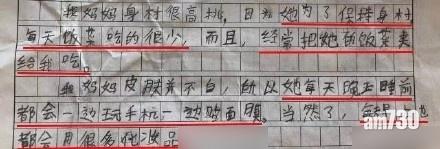 我妈妈身材很高挑，因为她为了保持身材
每天饭菜吃的很少，而且，经常把她的饭菜夹
给我吃。
我妈妈皮肤并不白，所以她每天晚上睡前
都会一边玩手机一边贴面膜。当然了，
都会用很多化妆品
am730